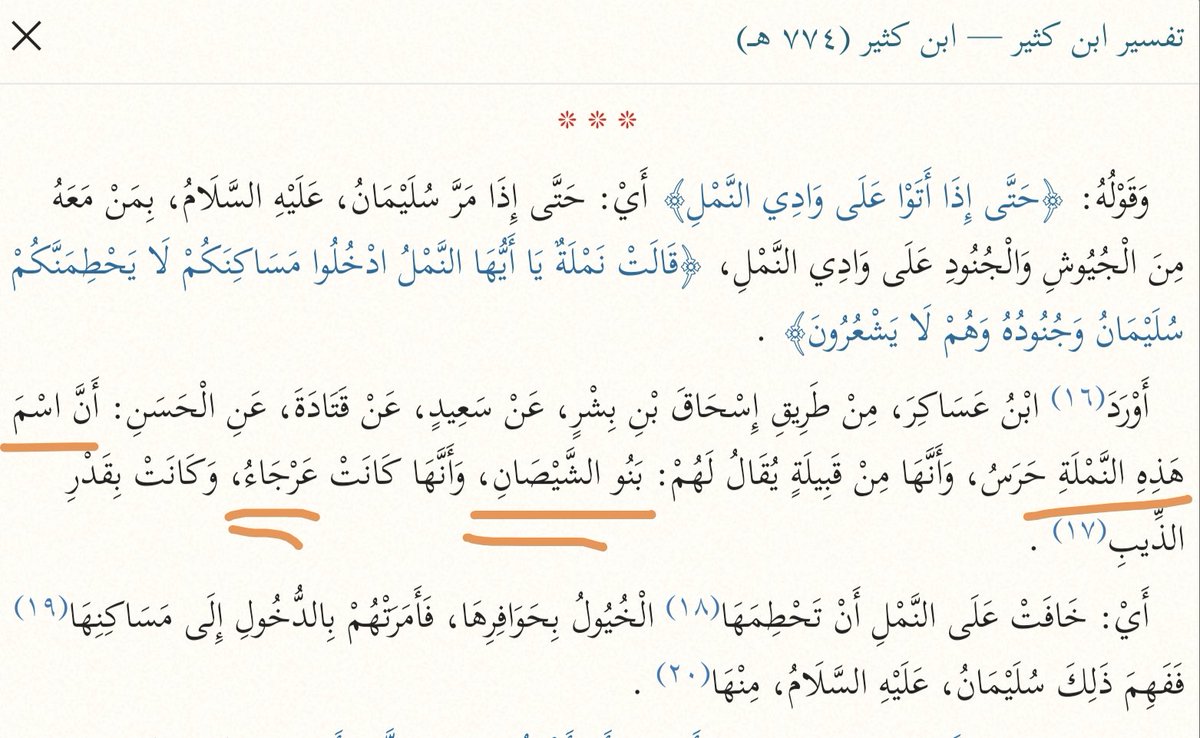 تفسير ابن كثير — ابن كثير (٧٧٤ هـ)
وَقَوْلُهُ: ﴿حَتَّى إِذَا أَتَوْا عَلَى وَادِي النَّمْلِ﴾ أَيْ: حَتَّى إِذَا مَرَّ سُلَيْمَانُ، عَلَيْهِ السَّلَامُ، بِمَنْ مَعَهُ
مِنَ الْجُيُوشِ وَالْجُنُودِ عَلَى وَادِي النَّمْلِ، ﴿قَالَتْ نَمْلَةٌ يَا أَيُّهَا النَّمْلُ ادْخُلُوا مَسَاكِنَكُمْ لَا يَحْطِمَنَّكُمْ
سُلَيْمَانُ وَجُنُودُهُ وَهُمْ لَا يَشْعُرُونَ﴾ .
أَوْرَدَ(١٦) ابْنُ عَسَاكِرَ، مِنْ طَرِيقِ إِسْحَاقَ بْنِ بِشْرٍ، عَنْ سَعِيدٍ، عَنْ قَتَادَةَ، عَنِ الْحَسَنِ: أَنَّ اسْمَ
هَذِهِ النَّمْلَةِ حَرَسُ، وَأَنَّهَا مِنْ قَبِيلَةٍ يُقَالُ لَهُمْ: بَنُو الشَّيْصَانِ، وَأَنَّهَا كَانَتْ عَرْجَاءُ، وَكَانَتْ بِقَدْرِ
الذِّيبِ(١٧) .
أَيْ: خَافَتْ عَلَى النَّمْلِ أَنْ تَحْطِمَهَا(١٨) الْخُيُولُ بِحَوَافِرِهَا، فَأَمَرَتْهُمْ بِالدُّخُولِ إِلَى مَسَاكِنِهَا(١٩)
فَفَهِمَ ذَلِكَ سُلَيْمَانُ، عَلَيْهِ السَّلَامُ، مِنْهَا(٢٠) .